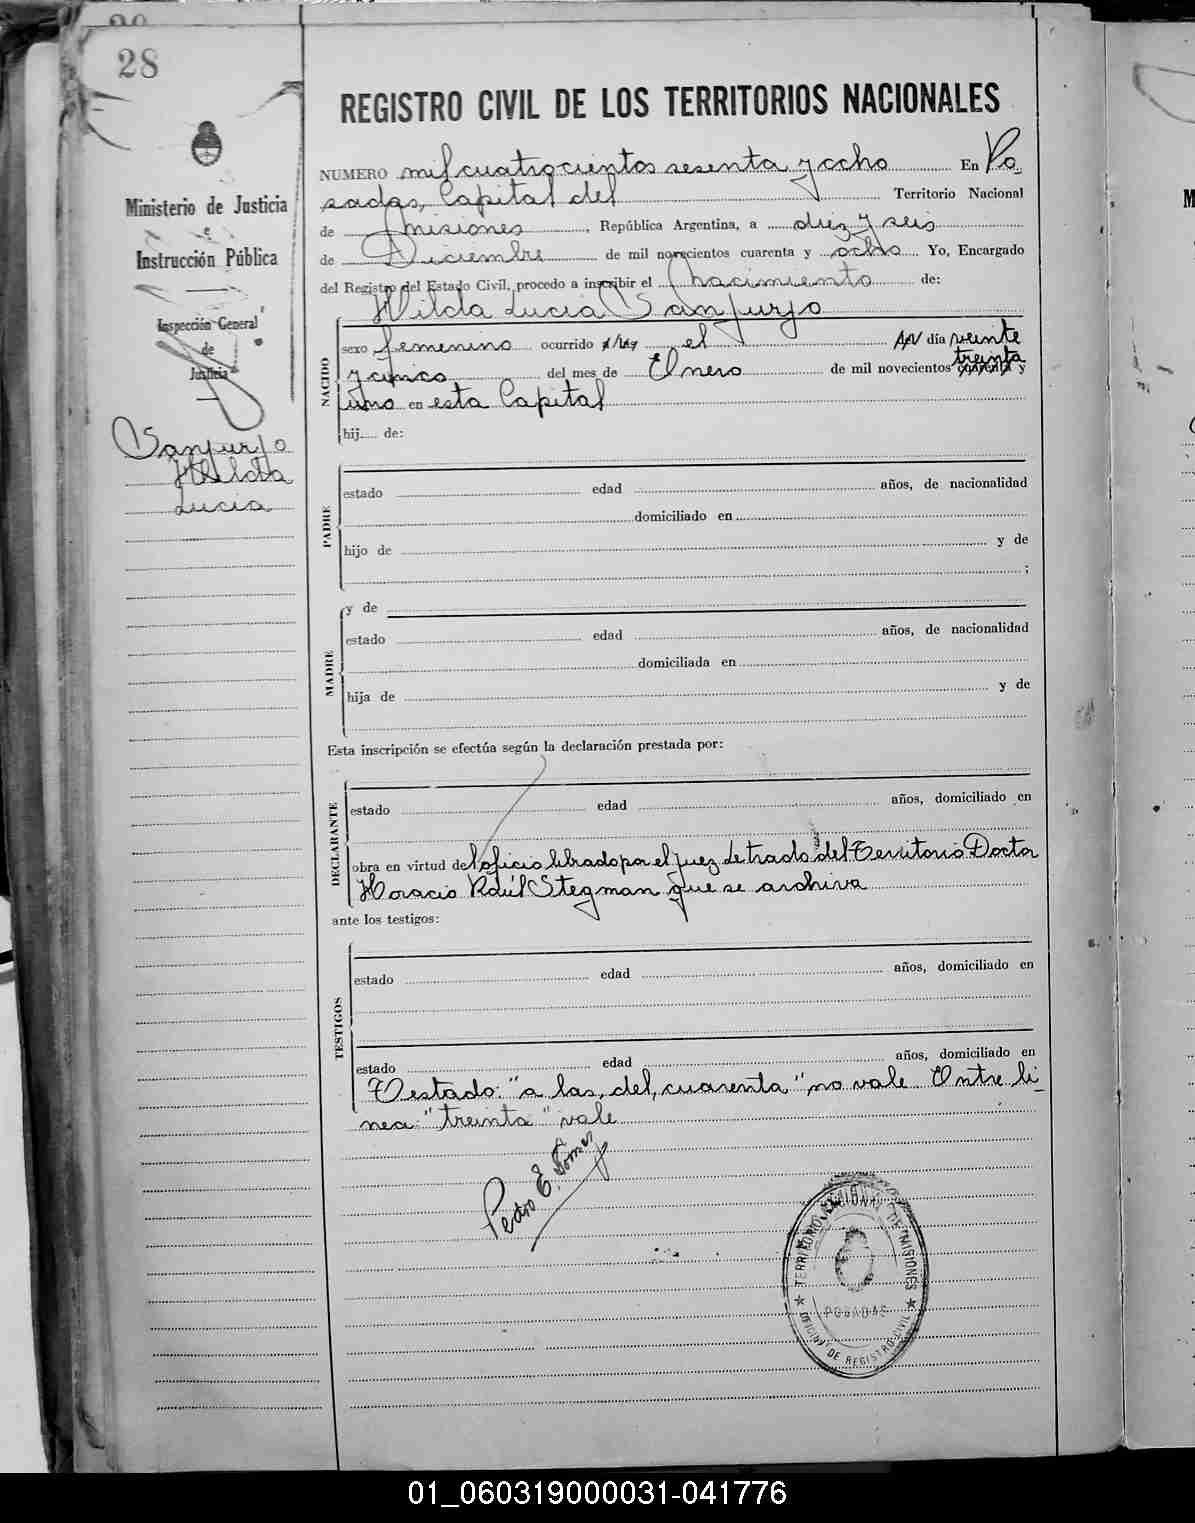 28
REGISTRO CIVIL DE LOS TERRITORIOS NACIONALES
Ministerio de Justicia
e
Instrucción Pública
Inspección General
de
Justicia
Sanjurjo
Hilda
Lucia
NUMERO mil cuatrocientos sesenta y ocho En Po
sadas, Capital del Territorio Nacional
de Misiones, República Argentina, a diez y seis
de Diciembre de mil novecientos cuarenta y ocho Yo, Encargado
del Registro del Estado Civil, procedo a inscribir el Nacimiento de:
Hilda Lucia Sanjurjo
NACIDO
sexo femenino ocurrido a las el del día veinte
y cinco del mes de Enero de mil novecientos cuarenta treinta y
uno en esta Capital
hij.... de:
PADRE
estado edad años, de nacionalidad
domiciliado en
hijo de y de
;
MADRE
y de
estado edad años, de nacionalidad
domiciliada en
hija de y de
Esta inscripción se efectúa según la declaración prestada por:
DECLARANTE
estado edad años, domiciliado en
obra en virtud del oficio librado por el Juez Letrado del Territorio Doctor
Horacio Raúl Stegman que se archiva
ante los testigos:
TESTIGOS
estado edad años, domiciliado en
estado edad años, domiciliado en
Testado: "a las, del, cuarenta" no vale Entre li-
nea: "treinta" vale
Pedro E. Gómez
TERRITORIO NACIONAL DE MISIONES
POSADAS
OFICINA DE REGISTRO CIVIL
01_060319000031-041776